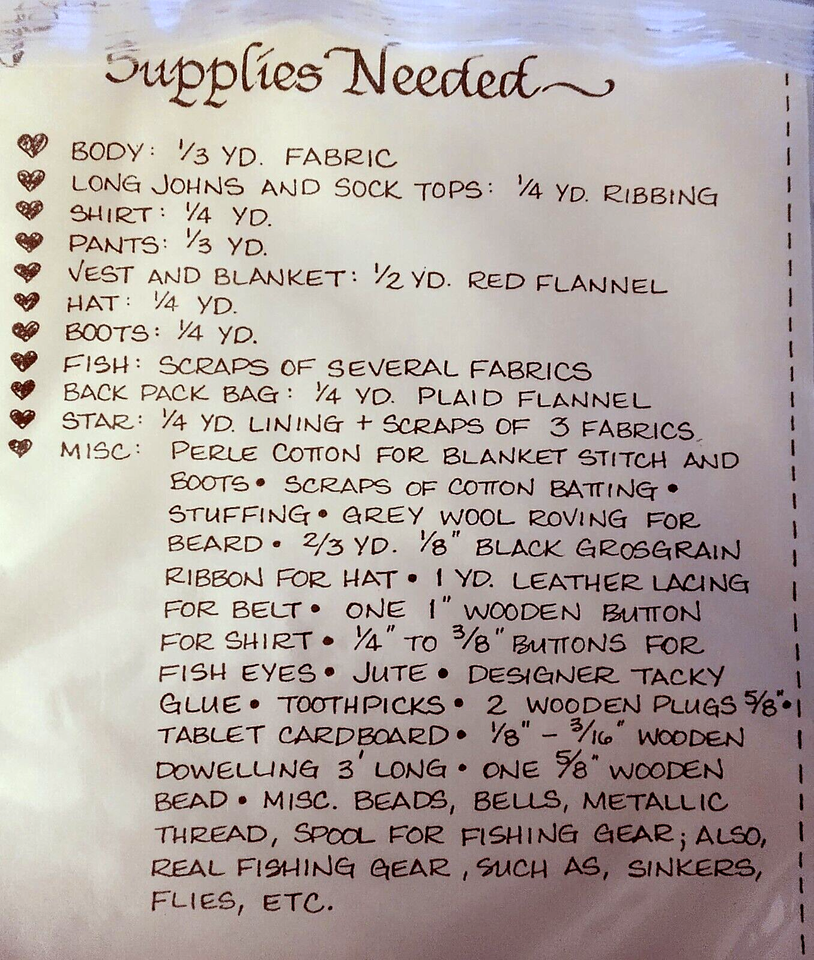 Supplies Needed
BODY: 1/3 YD. FABRIC
LONG JOHNS AND SOCK TOPS: 1/4 YD. RIBBING
SHIRT: 1/4 YD.
PANTS: 1/3 YD.
VEST AND BLANKET: 1/2 YD. RED FLANNEL
HAT: 1/4 YD.
BOOTS: 1/4 YD.
FISH: SCRAPS OF SEVERAL FABRICS
BACK PACK BAG: 1/4 YD. PLAID FLANNEL
STAR: 1/4 YD. LINING + SCRAPS OF 3 FABRICS.
MISC: PERLE COTTON FOR BLANKET STITCH AND
BOOTS • SCRAPS OF COTTON BATTING •
STUFFING • GREY WOOL ROVING FOR
BEARD • 2/3 YD. 1/8" BLACK GROSGRAIN
RIBBON FOR HAT • 1 YD. LEATHER LACING
FOR BELT • ONE 1" WOODEN BUTTON
FOR SHIRT • 1/4" TO 3/8" BUTTONS FOR
FISH EYES • JUTE • DESIGNER TACKY
GLUE • TOOTHPICKS • 2 WOODEN PLUGS 5/8" •
TABLET CARDBOARD • 1/8" - 3/16" WOODEN
DOWELLING 3' LONG • ONE 5/8" WOODEN
BEAD • MISC. BEADS, BELLS, METALLIC
THREAD, SPOOL FOR FISHING GEAR; ALSO,
REAL FISHING GEAR, SUCH AS, SINKERS,
FLIES, ETC.